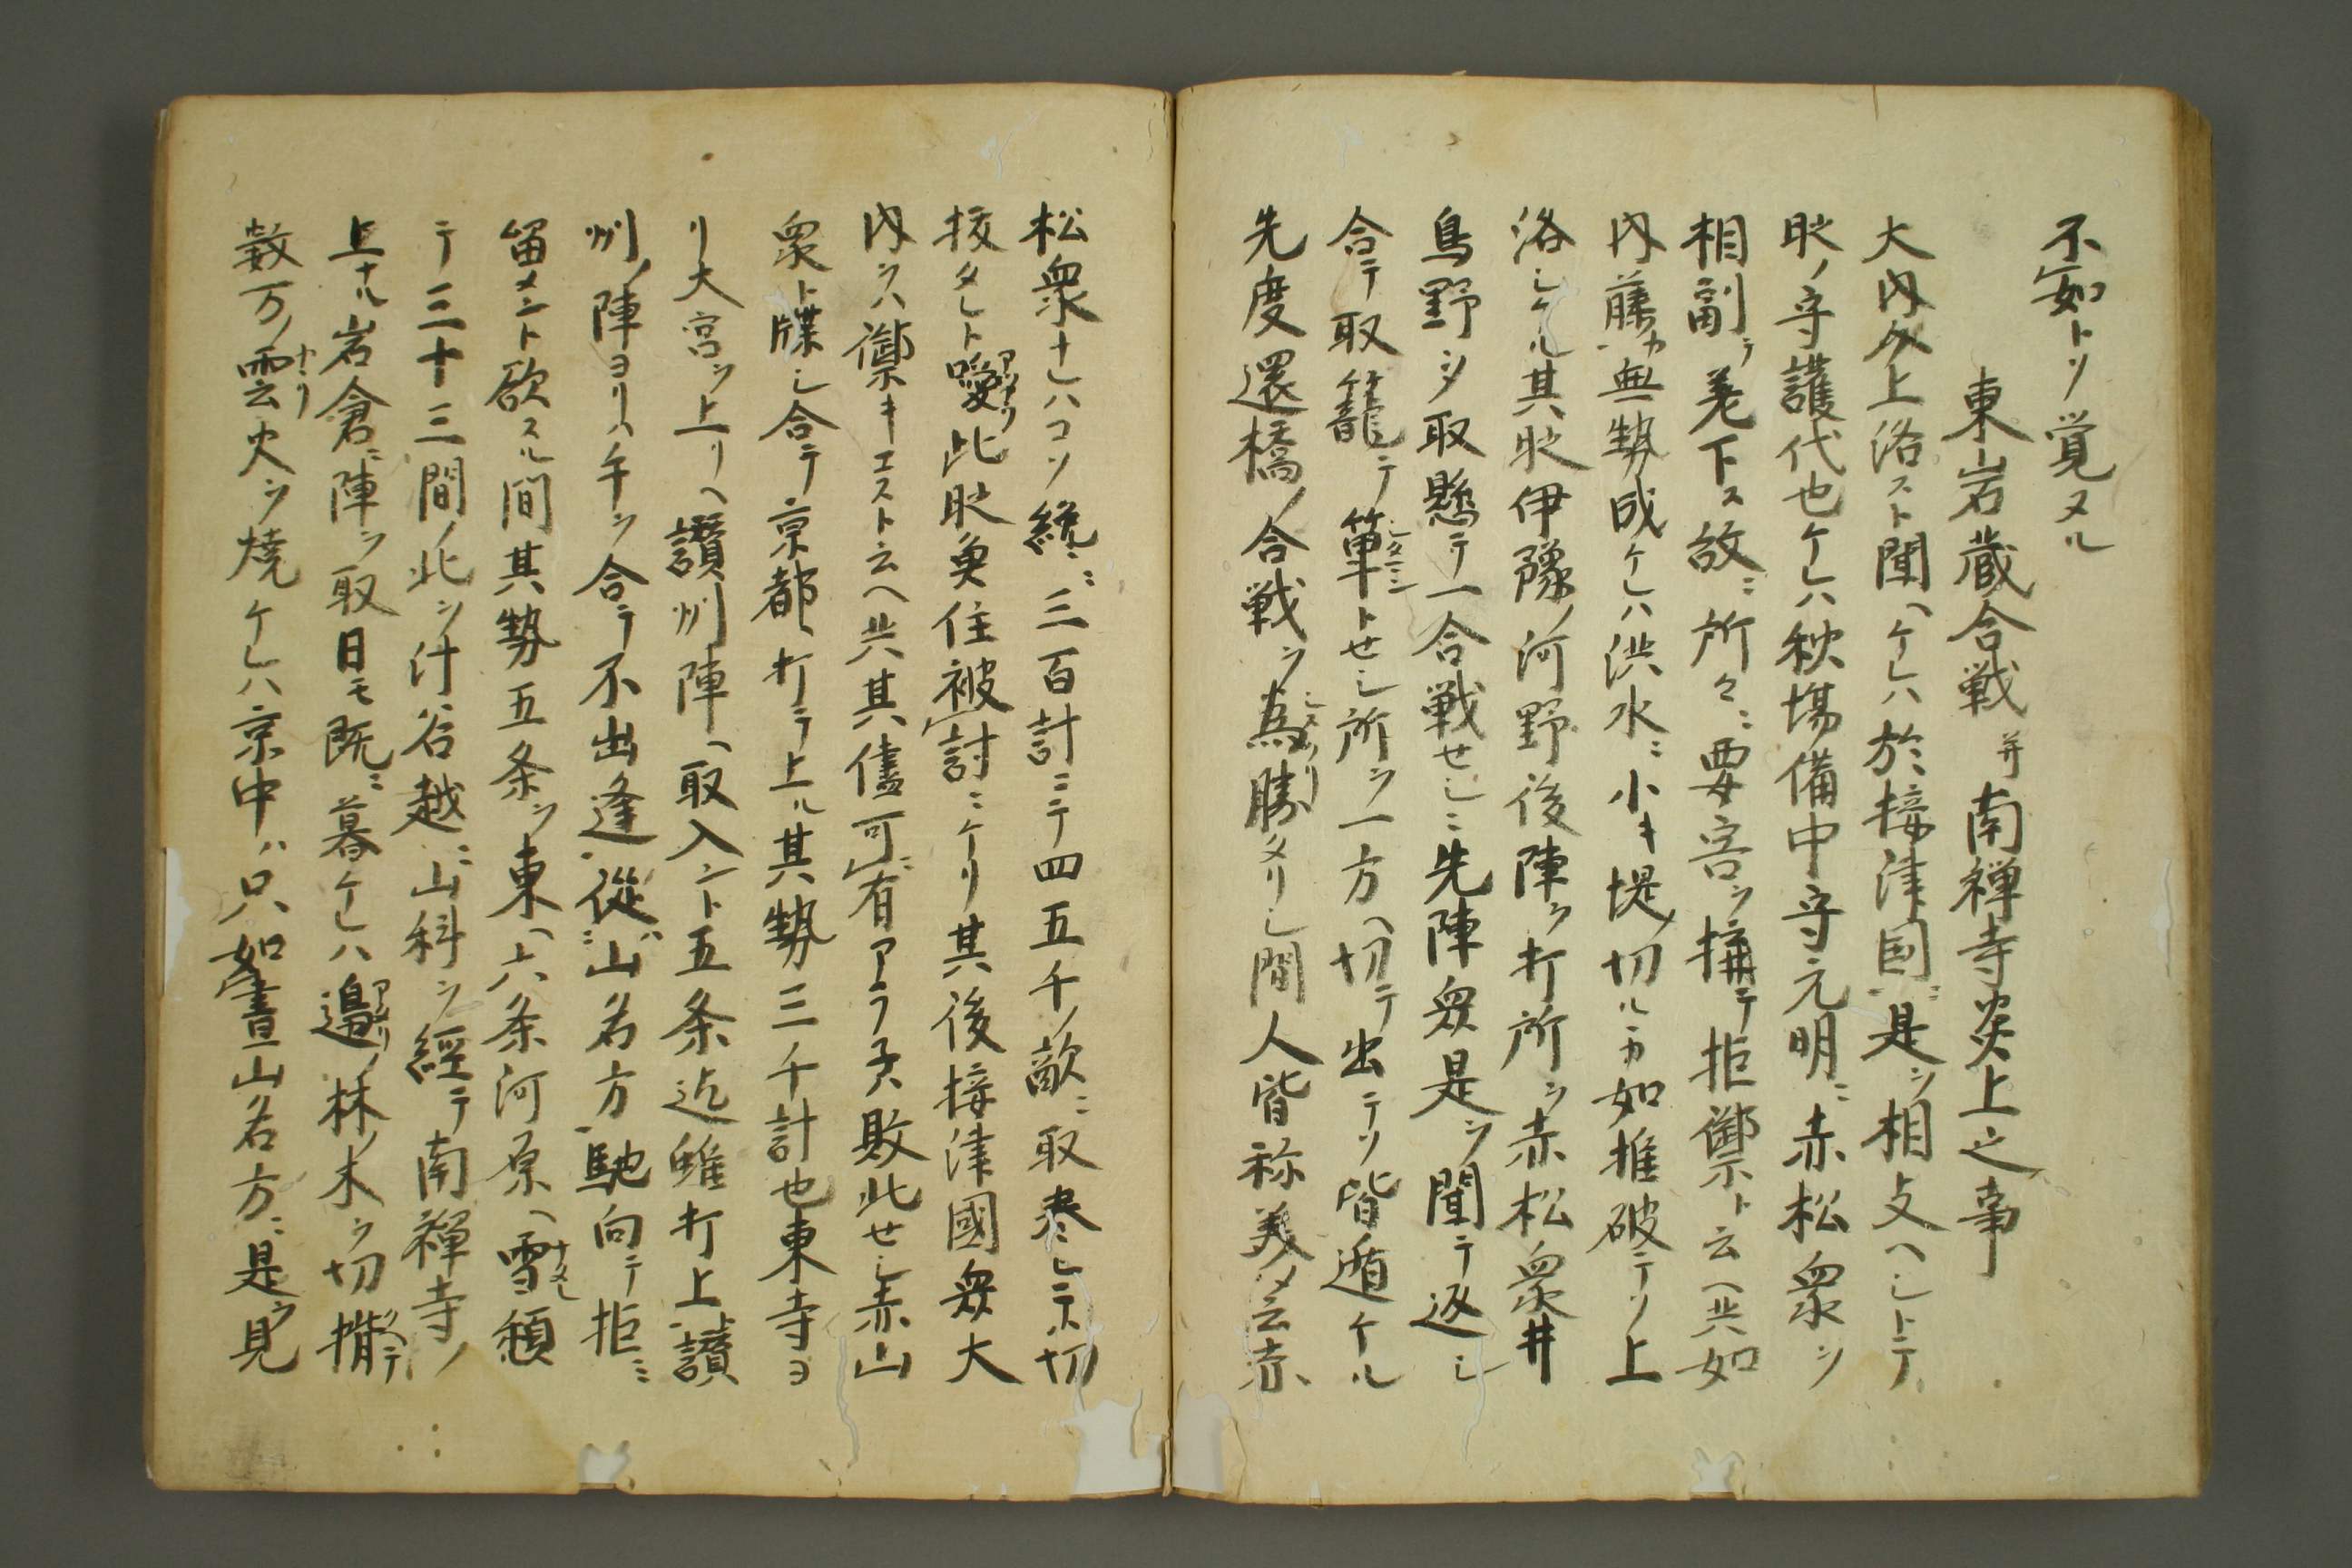 不如トソ覚ヌル
東岩蔵合戦并南禅寺炎上之事
大内介上洛スト聞ヘケレハ於接津国ニ是ヲ相支ヘントテ
此ノ守護代也ケレハ秋場備中守元明ニ赤松衆ヲ
相副テ差下ス故ニ所々ニ要害ヲ搆テ拒禦ト云ヘ共如
内藤カ無勢成ケレハ洪水ニ小キ堤ノ切ルカ如推破テソ上
洛シケル其比伊豫ノ河野後陣ヲ打所ヲ赤松衆井
鳥野ニ取懸テ一合戦せシニ先陣衆是ヲ聞テ返シ
合テ取籠テ箄トせシ所ヲ一方ヘ切テ出テソ皆遁ケル
先度還橋ノ合戦ヲ為勝タリシ間人皆称美メ云赤
松衆ナレハコソ纔ニ三百計ニテ四五千ノ敵ニ取巻レテ切
抜タレト噯アツカウ此比奥住被討ニケリ其後接津國衆大
内ヲハ禦キエスト云ヘ共其儘可有アラ子ハ敗北せシ赤山
衆ト牒シ合テ京都ヘ打テ上ル其勢三千計也東寺ヨ
リ大宮ヲ上リヘ讃州陣ヘ取入ント五条迄雖打上讃
州ノ陣ヨリハ手ヲ合テ不出逢従山名方馳向テ拒ミ
留メント欲スル間其勢五条ヲ東ヘ六条河原ヘ雪頽ナタレ
テ三十三間ノ北ヲ汁谷越ニ山科ヲ經テ南禅寺ノ
上ナル岩倉ニ陣ヲ取日モ既ニ暮ケレハ邉アタリノ林ノ木ヲ切
数万ノ火ヲ焼ケレハ京中ハ只如晝山名方ニ是ヲ見